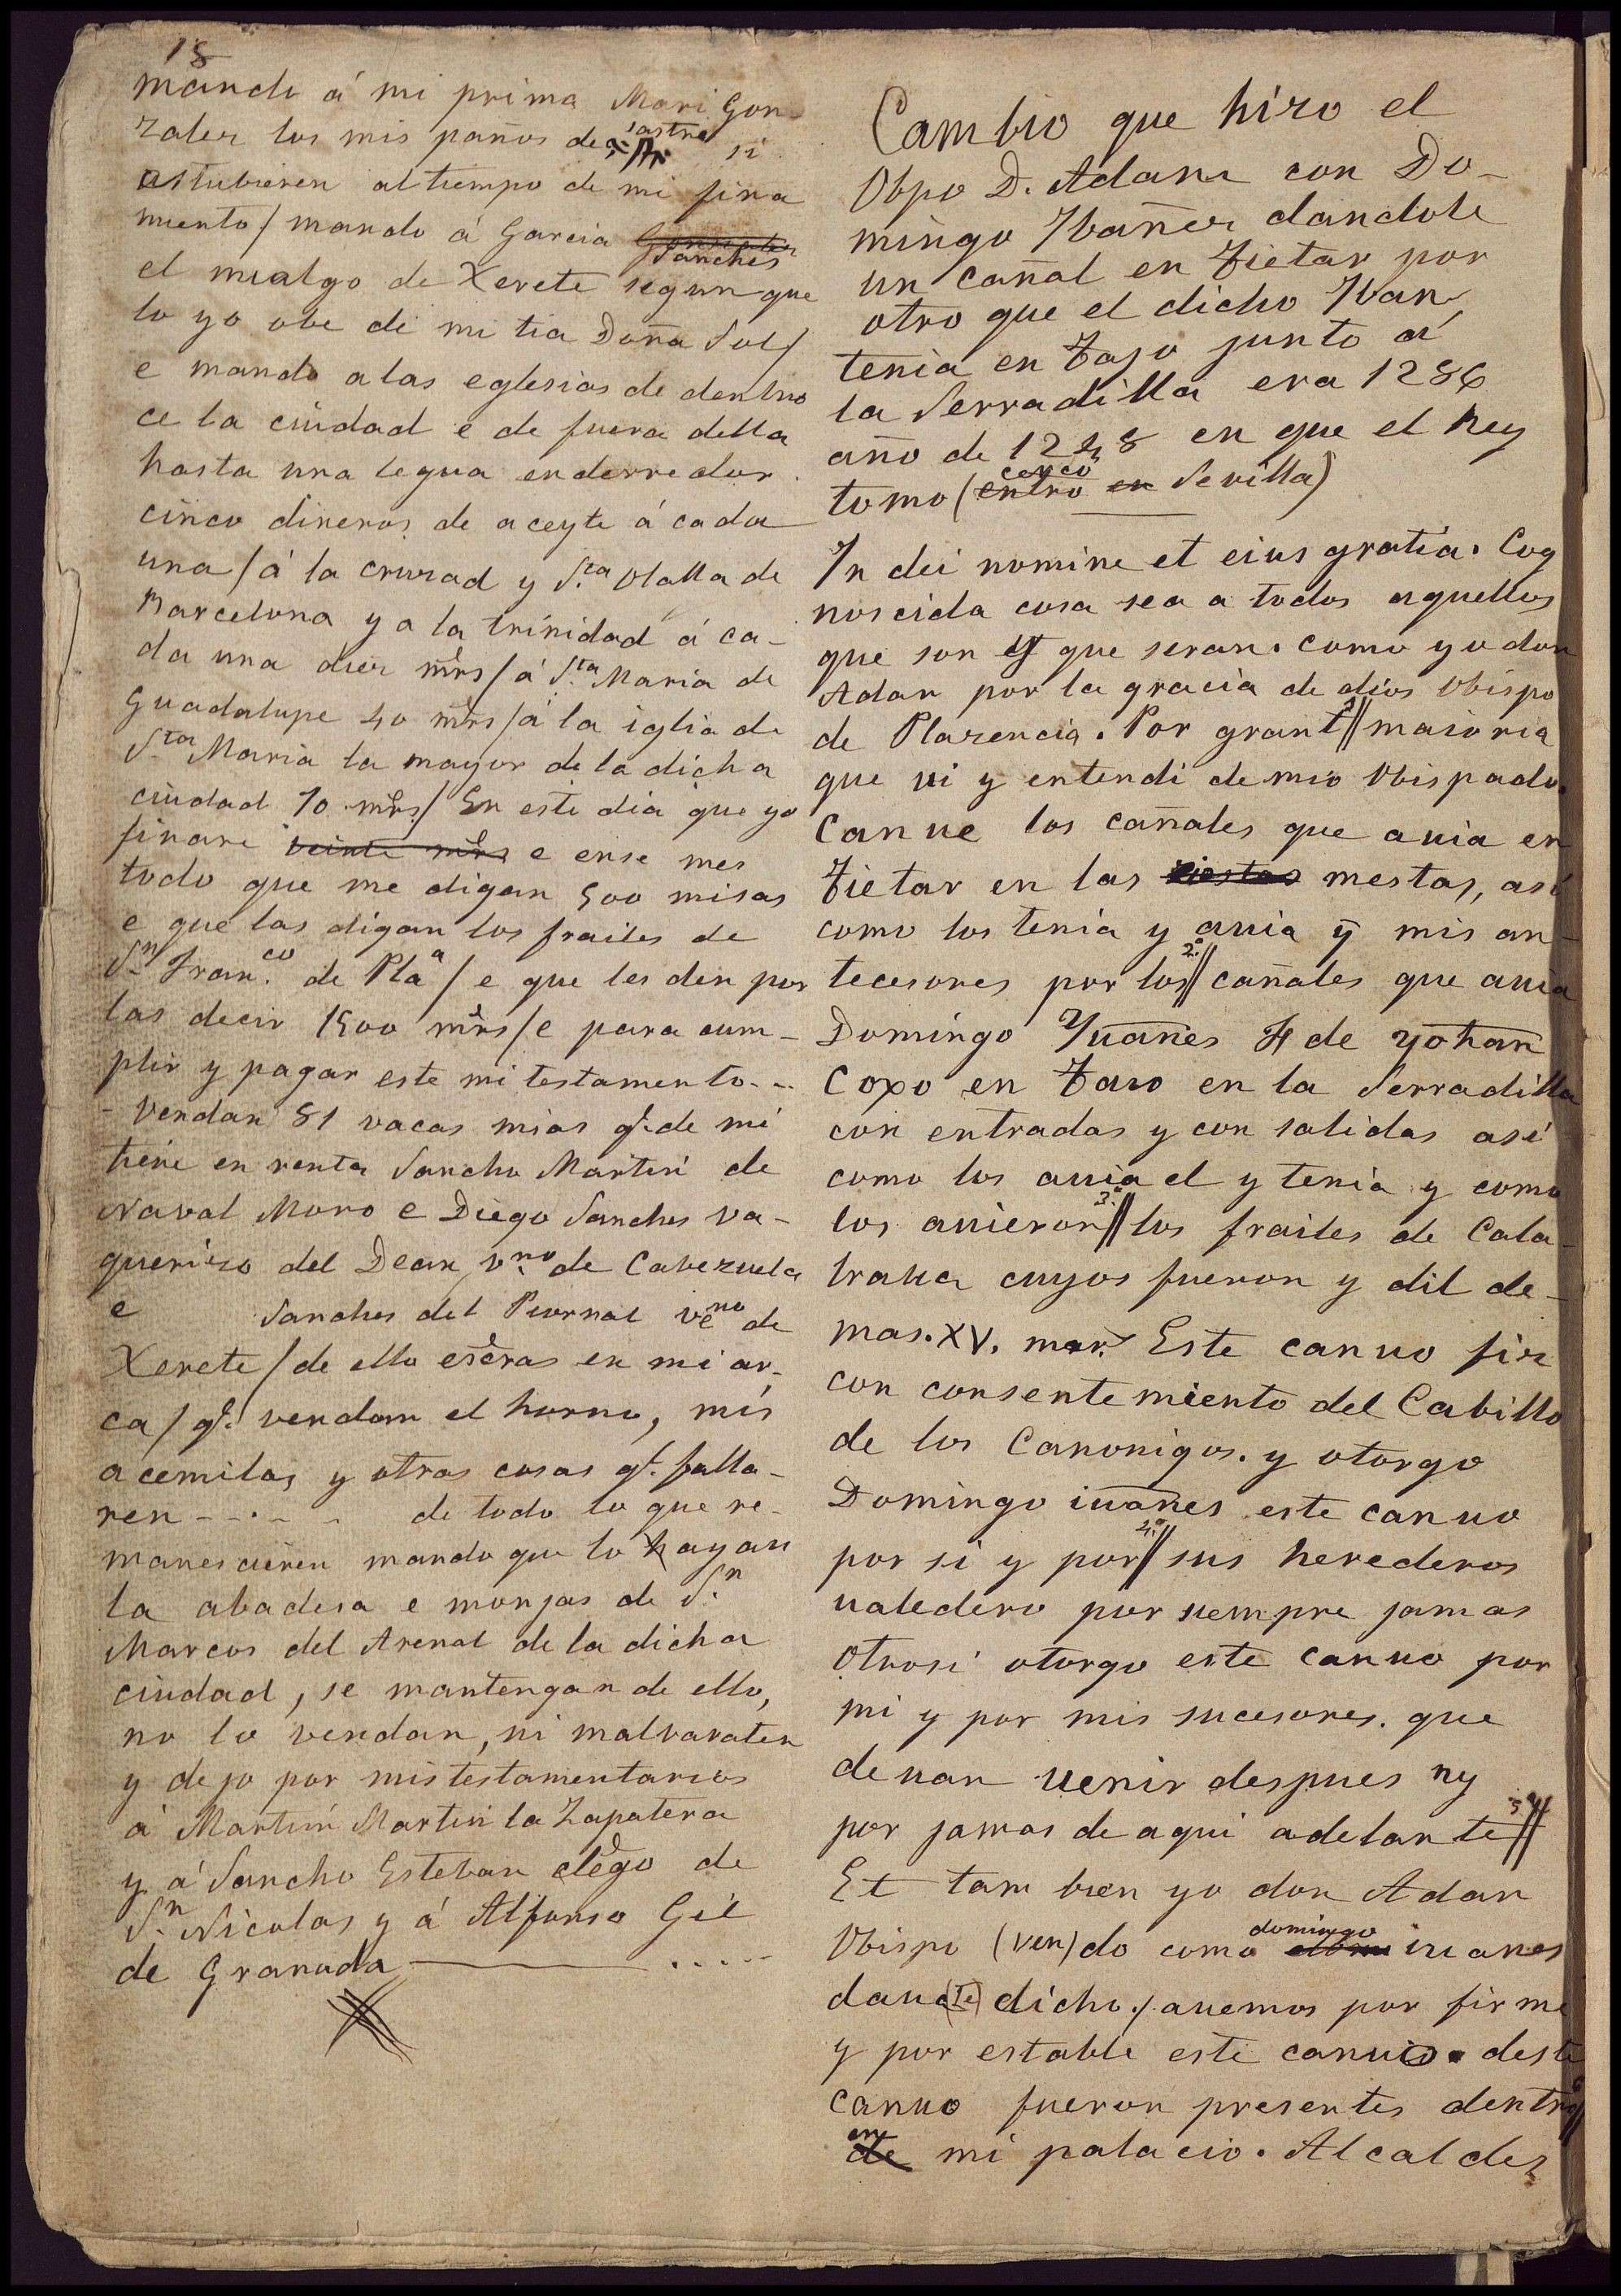 18
mando á mi prima Mari Gon-
zales los mis paños de sastre si
astubieren al tiempo de mi fina
miento / mando á Garcia Gonzales Sanches
el mialgo de Xerete segun que
lo yo obe de mi tia Doña Sol /
e mando a las eglesias de dentro
ce la ciudad e de fuera della
hasta una legua enderredor
cinco dineros de aceyte á cada
una / á la cruzad y S.ta Olalla de
Barcelona y a la trinidad á ca-
da una diez mrs / á S.ta Maria de
Guadalupe 40 mrs / á la iglia de
S.ta Maria la mayor de la dicha
ciudad 70 mrs / En este dia que yo
finare veinte mrs e ense mes
todo que me digan 500 misas
e que las digan los frailes de
S.n Fran.co de Pla.a / e que les den por
las decir 1500 mrs / e para cum-
plir y pagar este mi testamento...
- Vendan 81 vacas mias q.e de mi
tiene en renta Sancho Martin de
Naval Moro e Diego Sanches va-
querizo del Dean, v.no de Cabezuela
e Sanches del Piornal ve.no de
Xerete / de ello escras en mi ar-
ca / q.e vendan el horno, mis
acemilas y otras cosas q.e falla-
ren - - . - - de todo lo que re-
manescieren mando que lo hayan
la abadesa e monjas de S.n
Marcos del Arenal de la dicha
ciudad, se mantengan de ello,
no lo vendan, ni malvaraten
y dejo por mis testamentarios
á Martin Martin la Zapatera
y á Sancho Esteban clego de
S.n Nicolas y á Alfonso Gil
de Granada ———— .....
Cambio que hizo el
Obpo D. Adam con Do-
mingo Ybañez dandole
un cañal en Tietar por
otro que el dicho Yban
tenia en Tajo junto á
la Serradilla era 1286
año de 1248 en que el Rey
tomo (entro cerco en Sevilla)
In dei nomine et eius gratia. Cog
noscida cosa sea a todos aquellos
que son y que seran. como yo don
Adan por la gracia de dios Obispo
de Plazencia. Por grant // maioria
que ui y entendi de mio Obispado.
Canue los cañales que auia en
Tietar en las riestas mestas, asi
como los tenia y auia y mis an-
tecesores por los 2.ª // cañales que auia
Domingo Yuañes F de yohan
Coxo en Taio en la Serradilla
con entradas y con salidas asi
como los auia el y tenia y como
los auieron 3.ª // los frailes de Cala-
traua cuyos fueron y dil de-
mas. XV. mar. Este canuo fiz
con consentemiento del Cabillo
de los Canonigos. y otorgo
Domingo iuanes este canuo
por si y por 4.ª // sus herederos
ualedero por siempre jamas
otrosi otorgo este canuo por
mi y por mis sucesores. que
deuan uenir despues ny
por jamas de aqui adelante 5.ª //
Et tam bien yo don Adan
Obispo (ven)do como domingo iuanes
daua(te) dicho. / auemos por firme
y por estable este canuio. deste
canuo fueron presentes dentro //
de en mi palacio. Alcaldes